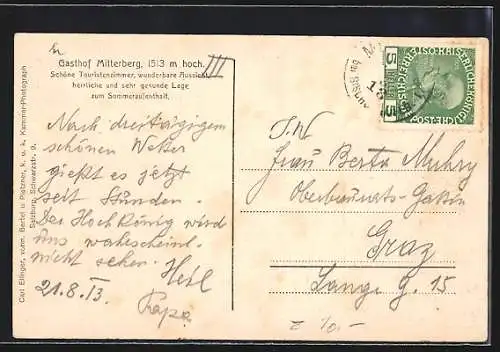 Gasthof Mitterberg, 1513 m hoch.
Schöne Touristenzimmer, wunderbare Aussicht,
herrliche und sehr gesunde Lage
zum Sommeraufenthalt.
III
Nach dreitägigem
schönen Wetter
gießt es jetzt
seit Stunden.
Der Hochkönig wird
uns wahrscheinl.
nicht sehen. Heil
21.8.13.
Papa
Carl Ellinger, vorm. Bertel u. Pietzner, k. u. k. Kammer-Photograph
Salzburg, Schwarzstr. 9.
5 5
Frau Berta Muhry
Oberbaurats-Gattin
Graz
Lange G. 15